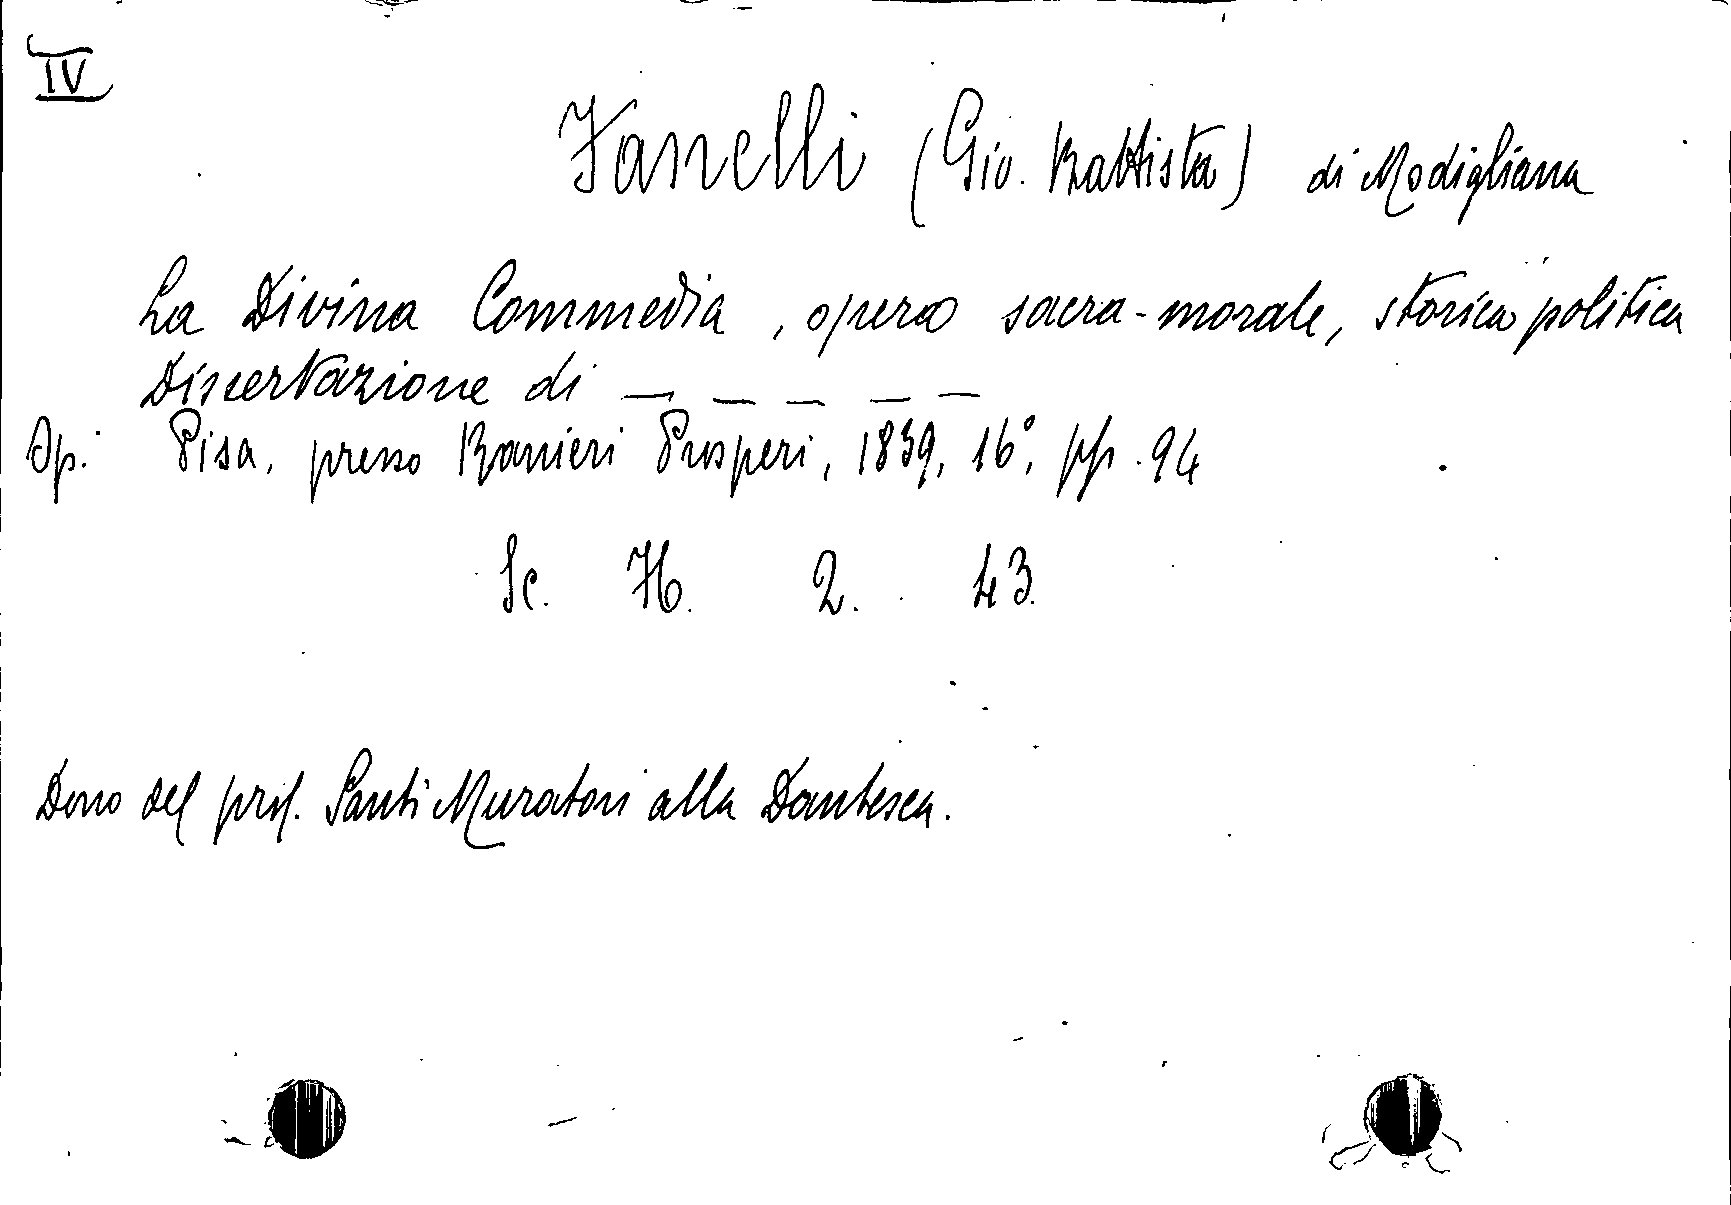 IV
Fanelli (Gio. Battista) di Modigliana
La Divina Commedia, opera sacra-morale, storica politica
Dissertazione di _ _ _ _ _
Op. Pisa, presso Ranieri Prosperi, 1839, 16°, pp. 94
Sc. H. 2. 43.
Dono del prof. Santi Muratori alla Dantesca.